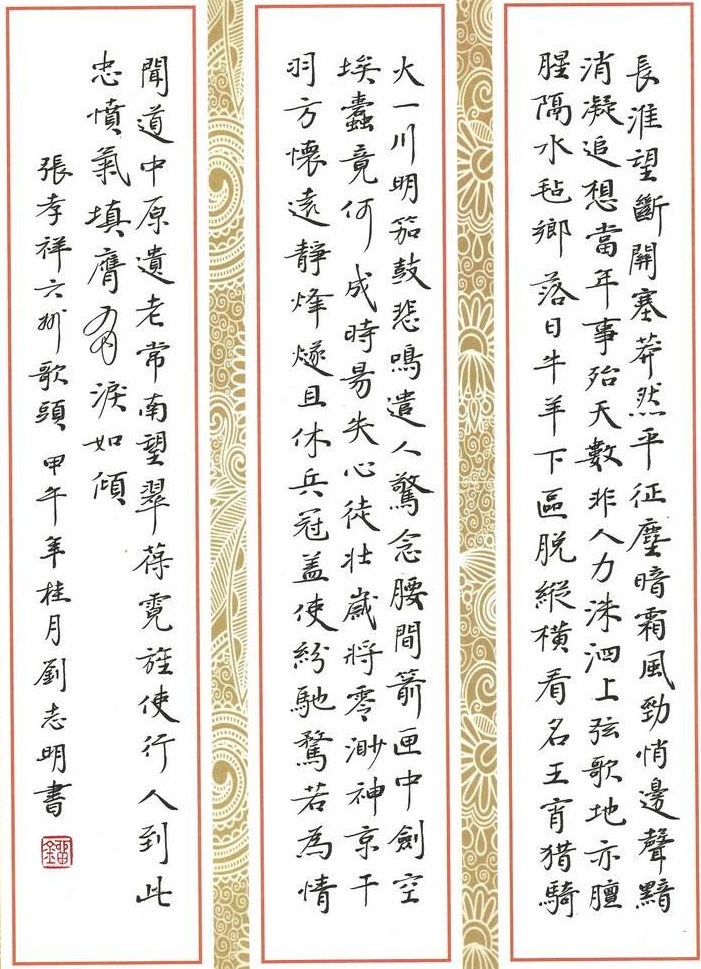 長淮望斷關塞莽然平征塵暗霜風勁悄邊聲黯
消凝追想當年事殆天數非人力洙泗上弦歌地亦膻
腥隔水毡鄉落日牛羊下區脫縱橫看名王宵猎騎
火一川明笳鼓悲鳴遣人驚念腰間箭匣中劍空
埃蠹竟何成時易失心徒壯歲將零渺神京干
羽方懷遠靜烽燧且休兵冠蓋使紛馳騖若為情
聞道中原遺老常南望翠葆霓旌使行人到此
忠憤氣填膺有淚如傾
張孝祥六州歌頭甲午年桂月劉志明書